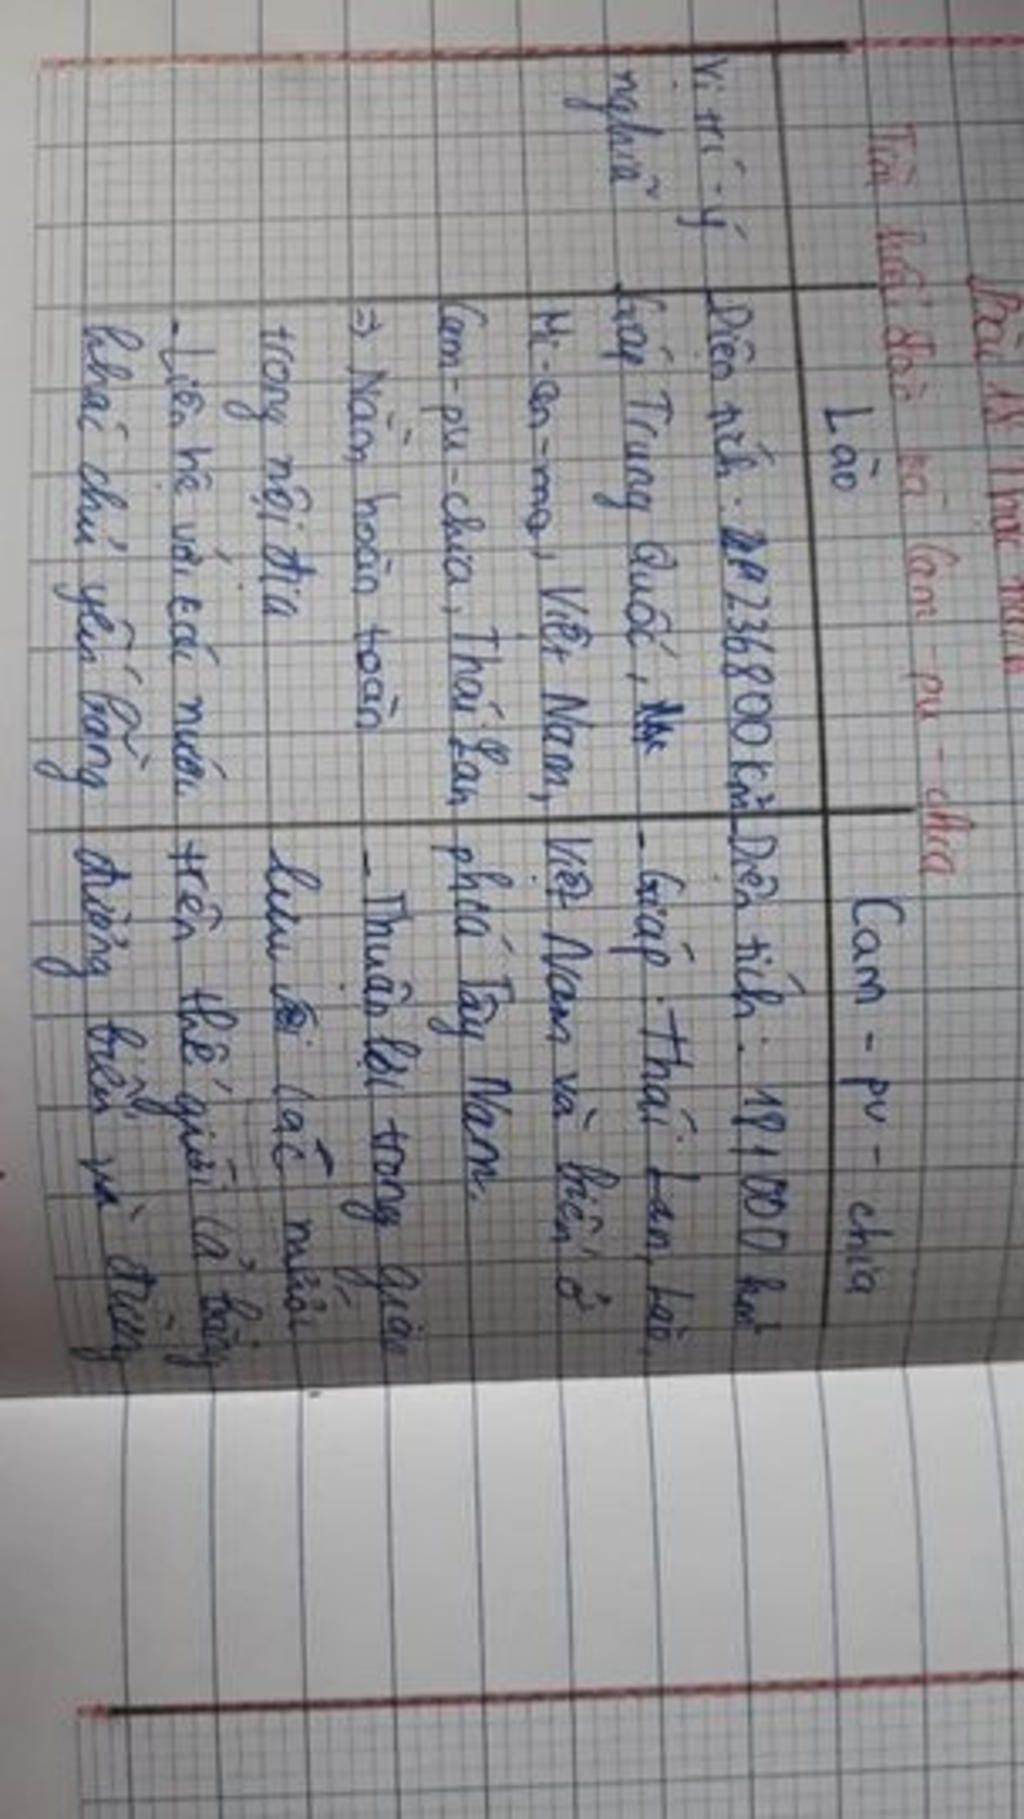 Bài 18 Thực hành
Tìm hiểu Lào và Cam-pu-chia
Lào
Cam-pu-chia
Vị trí-ý
nghĩa
Diện tích: 236800 km²
Giáp Trung Quốc,
Mi-an-ma, Việt Nam,
Cam-pu-chia, Thái Lan
⇒ Nằm hoàn toàn
trong nội địa
- Liên hệ với các nước
khác chủ yếu bằng
Diện tích: 181000 km²
- Giáp: Thái Lan, Lào,
Việt Nam và biển ở
phía Tây Nam.
- Thuận lợi trong giao
lưu với các nước
trên thế giới cả bằng
đường biển và đường